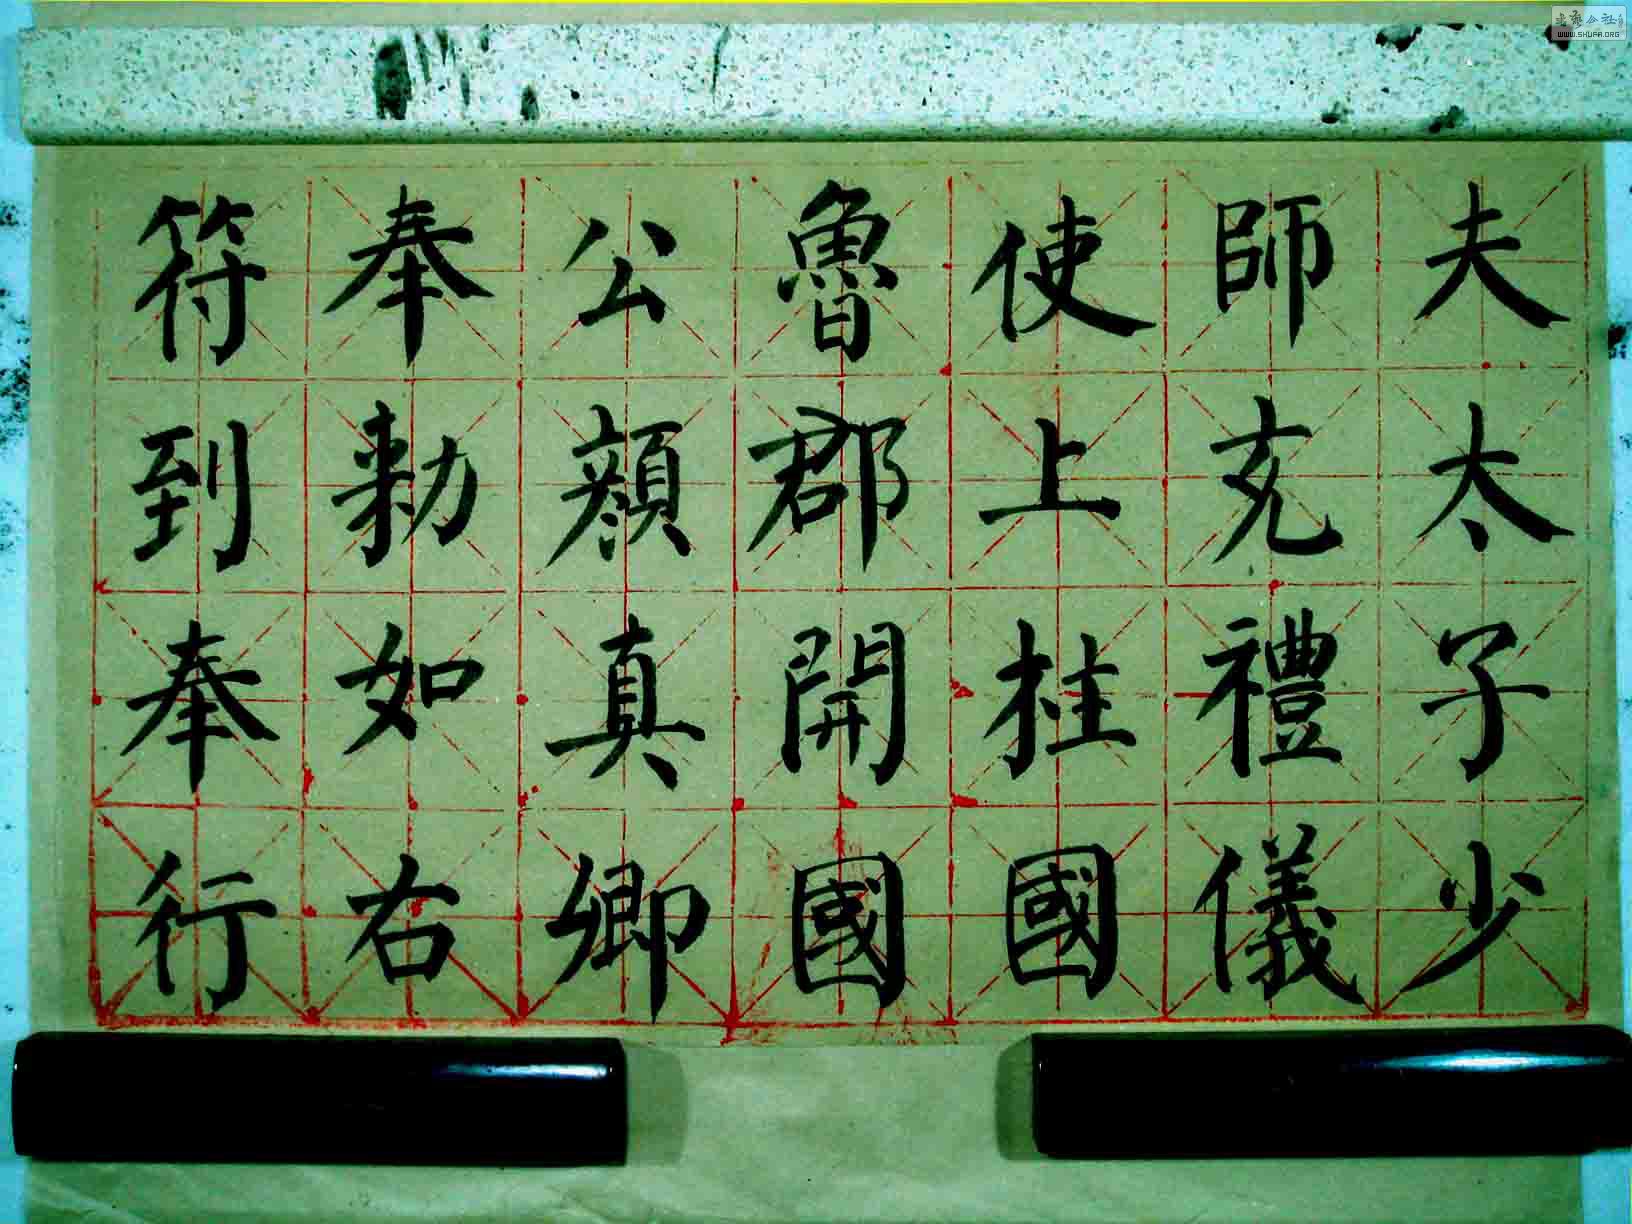 夫太子少
師充禮儀
使上柱國
魯郡開國
公顏真卿
奉勅如右
符到奉行
WWW.SHUFA.ORG